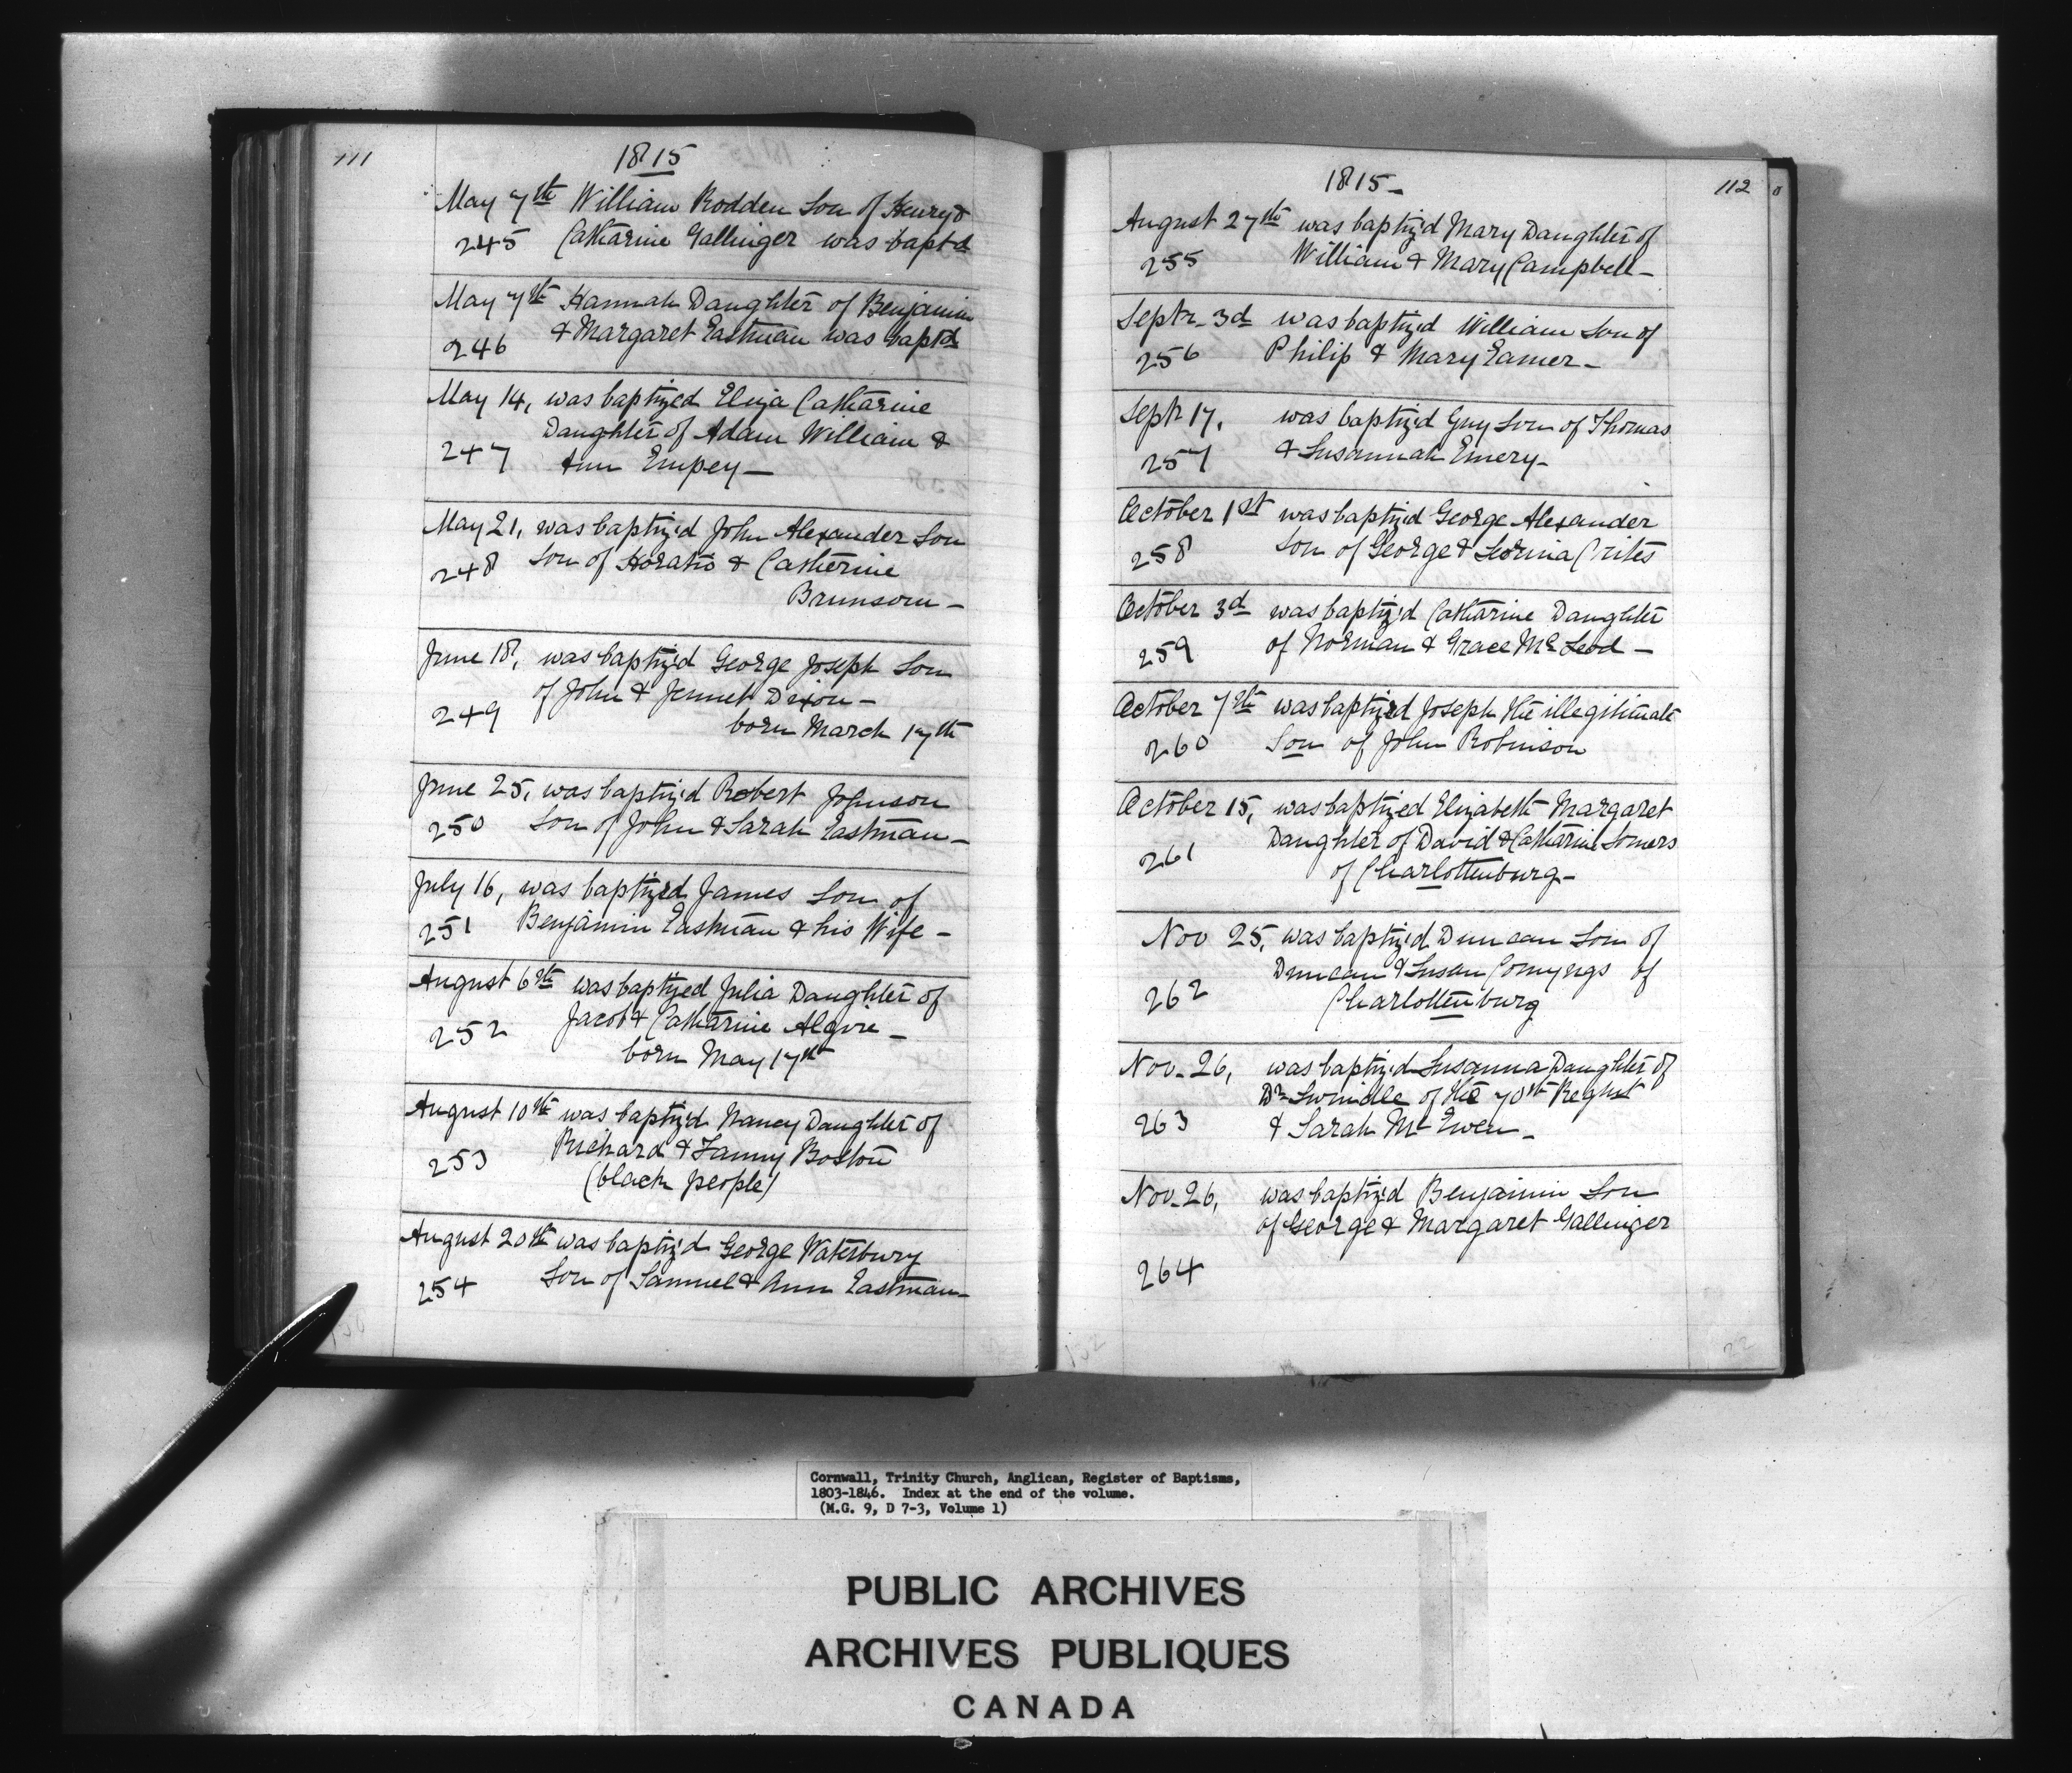 111
1815
May 7th William Rodden Son of Henry &
245 Catharine Gallinger was bapt'd
May 7th Hannah Daughter of Benjamin
246 & Margaret Eastman was bapt'd
May 14, was baptized Eliza Catharine
247 Daughter of Adam William &
Ann Empey—
May 21, was baptiz'd John Alexander Son
248 Son of Horatio & Catherine
Brunsom—
June 18, was baptiz'd George Joseph Son
of John & Jennet Dixon—
249 born March 17th
June 25, was baptiz'd Robert Johnson
250 Son of John & Sarah Eastman—
July 16, was baptized James Son of
251 Benjamin Eastman & his Wife—
August 6th was baptized Julia Daughter of
252 Jacob & Catharine Algire—
born May 17th
August 10th was baptiz'd Nancy Daughter of
253 Richard & Fanny Boston
(black people)
August 20th was baptiz'd George Waterbury
254 Son of Samuel & Ann Eastman—
1815—
112
August 27th was baptiz'd Mary Daughter of
255 William & Mary Campbell—
Septr. 3d was baptiz'd William Son of
256 Philip & Mary Eamer—
Septr 17, was baptiz'd Guy Son of Thomas
257 & Susannah Emery—
October 1st was baptiz'd George Alexander
258 Son of George & Crites
October 3d was baptiz'd Catharine Daughter
259 of Norman & Grace McLeod—
October 7th was baptized Joseph the illegitimate
260 Son of John Robinson
October 15, was baptized Elizabeth Margaret
261 Daughter of David & Catharine Somers
of Charlottenburg—
Nov 25, was baptiz'd Duncan Son of
Duncan & Susan of
262 Charlottenburg
Nov. 26, was baptiz'd Susanna Daughter of
Dr. Swindle of the 70th Regmt
263 & Sarah Mc Ewen—
Nov. 26, was baptiz'd Benjamin Son
of George & Margaret Gallinger
264
132
22
Cornwall, Trinity Church, Anglican, Register of Baptisms,
1803-1846. Index at the end of the volume.
(M.G. 9, D 7-3, Volume 1)
PUBLIC ARCHIVES
ARCHIVES PUBLIQUES
CANADA